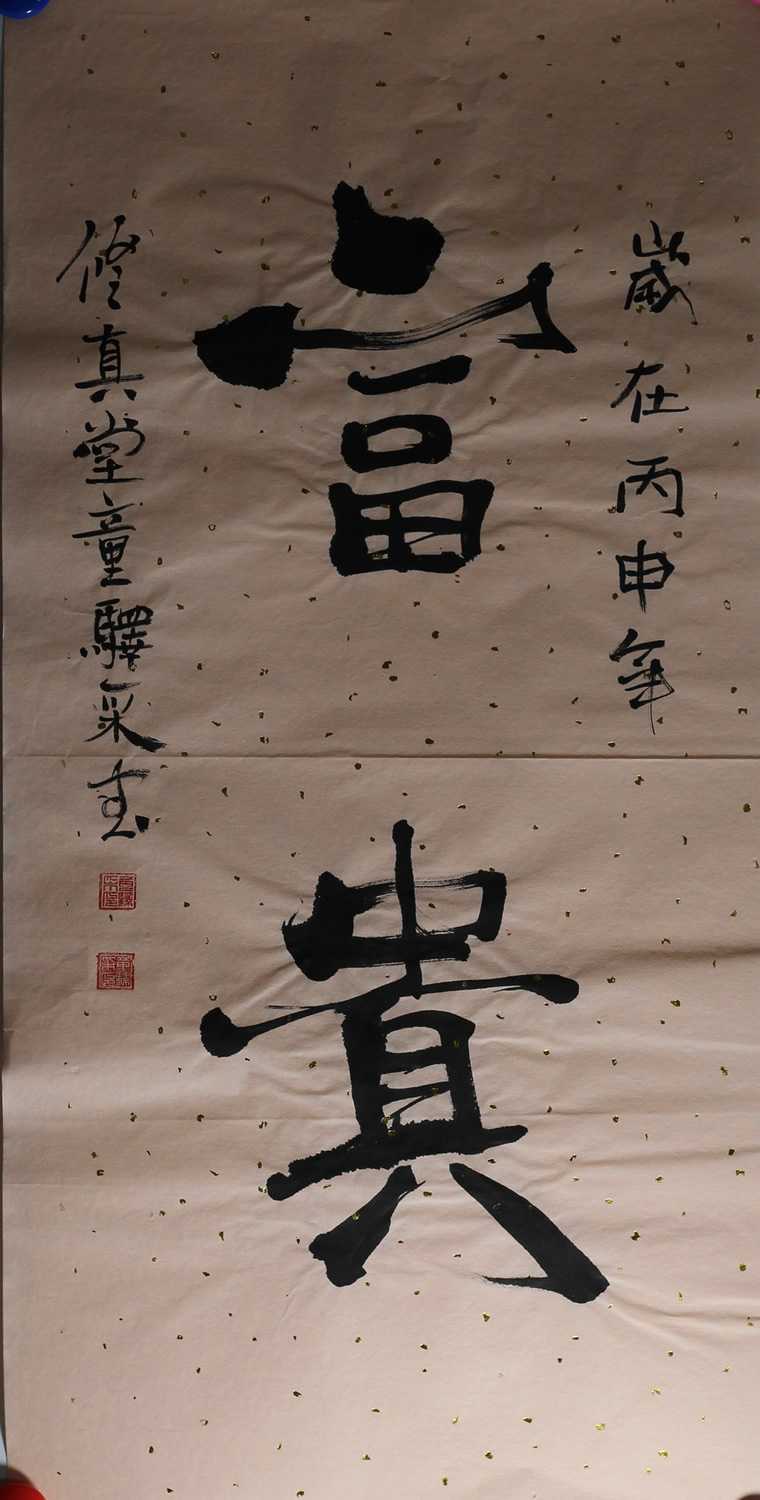 歲在丙申年
富貴
修真堂童驛采書